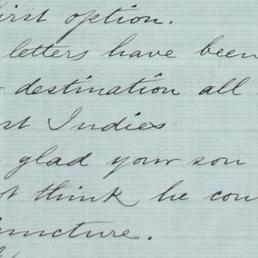 first option.
letters have been
destination all
st Indies
glad your son
ot think he cou
uncture.